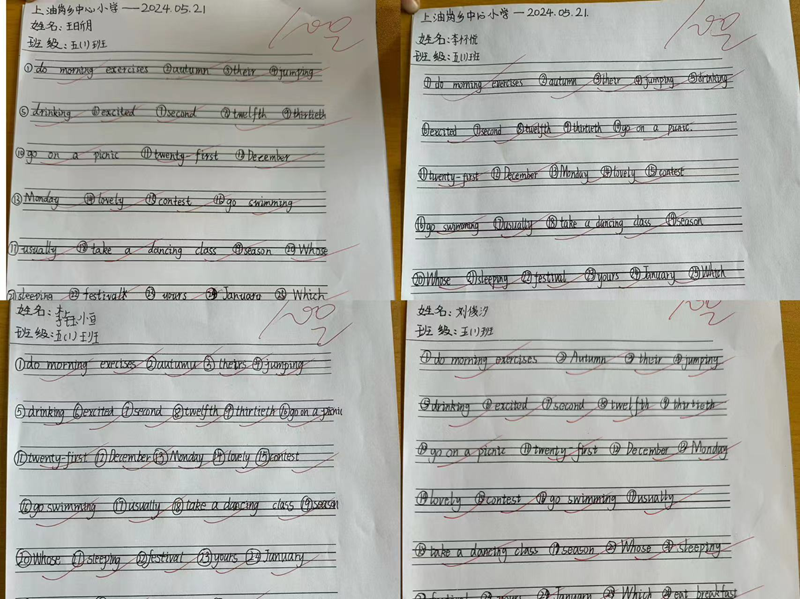 上油岗乡中心小学——2024.05.21
姓名:王明月
班级:五(1)班
①do morning exercises ②autumn ③their ④jumping
⑤drinking ⑥excited ⑦second ⑧twelfth ⑨thirtieth
⑩go on a picnic ⑪twenty-first ⑫December
⑬Monday ⑭lovely ⑮contest ⑯go swimming
⑰usually ⑱take a dancing class ⑲season ⑳Whose
㉑sleeping ㉒festival ㉓yours ㉔January ㉕Which
100
上油岗乡中心小学——2024.05.21.
姓名:李
班级:五(1)班
①do morning exercises ②autumn ③their ④jumping ⑤drinking
⑥excited ⑦second ⑧twelfth ⑨thirtieth ⑩go on a picnic.
⑪twenty-first ⑫December ⑬Monday ⑭lovely ⑮contest
⑯go swimming ⑰usually ⑱take a dancing class ⑲season
⑳Whose ㉑sleeping ㉒festival ㉓yours ㉔January ㉕Which
100
姓名:李
班级:五(1)班
①do morning exercises ②autumn ③theirs ④jumping
⑤drinking ⑥excited ⑦second ⑧twelfth ⑨thirtieth ⑩go on a picnic
⑪twenty-first ⑫December ⑬Monday ⑭lovely ⑮contest
⑯go swimming ⑰usually ⑱take a dancing class ⑲season
⑳Whose ㉑sleeping ㉒festival ㉓yours ㉔January
100
姓名:刘俊汐
班级:五(1)班
①do morning exercises ②Autumn ③their ④jumping
⑤drinking ⑥excited ⑦second ⑧twelfth ⑨thirtieth
⑩go on a picnic ⑪twenty first ⑫December ⑬Monday
⑭lovely ⑮contest ⑯go swimming ⑰usually
⑱take a dancing class ⑲season ⑳Whose ㉑sleeping
festival yours January Which eat breakfast
100